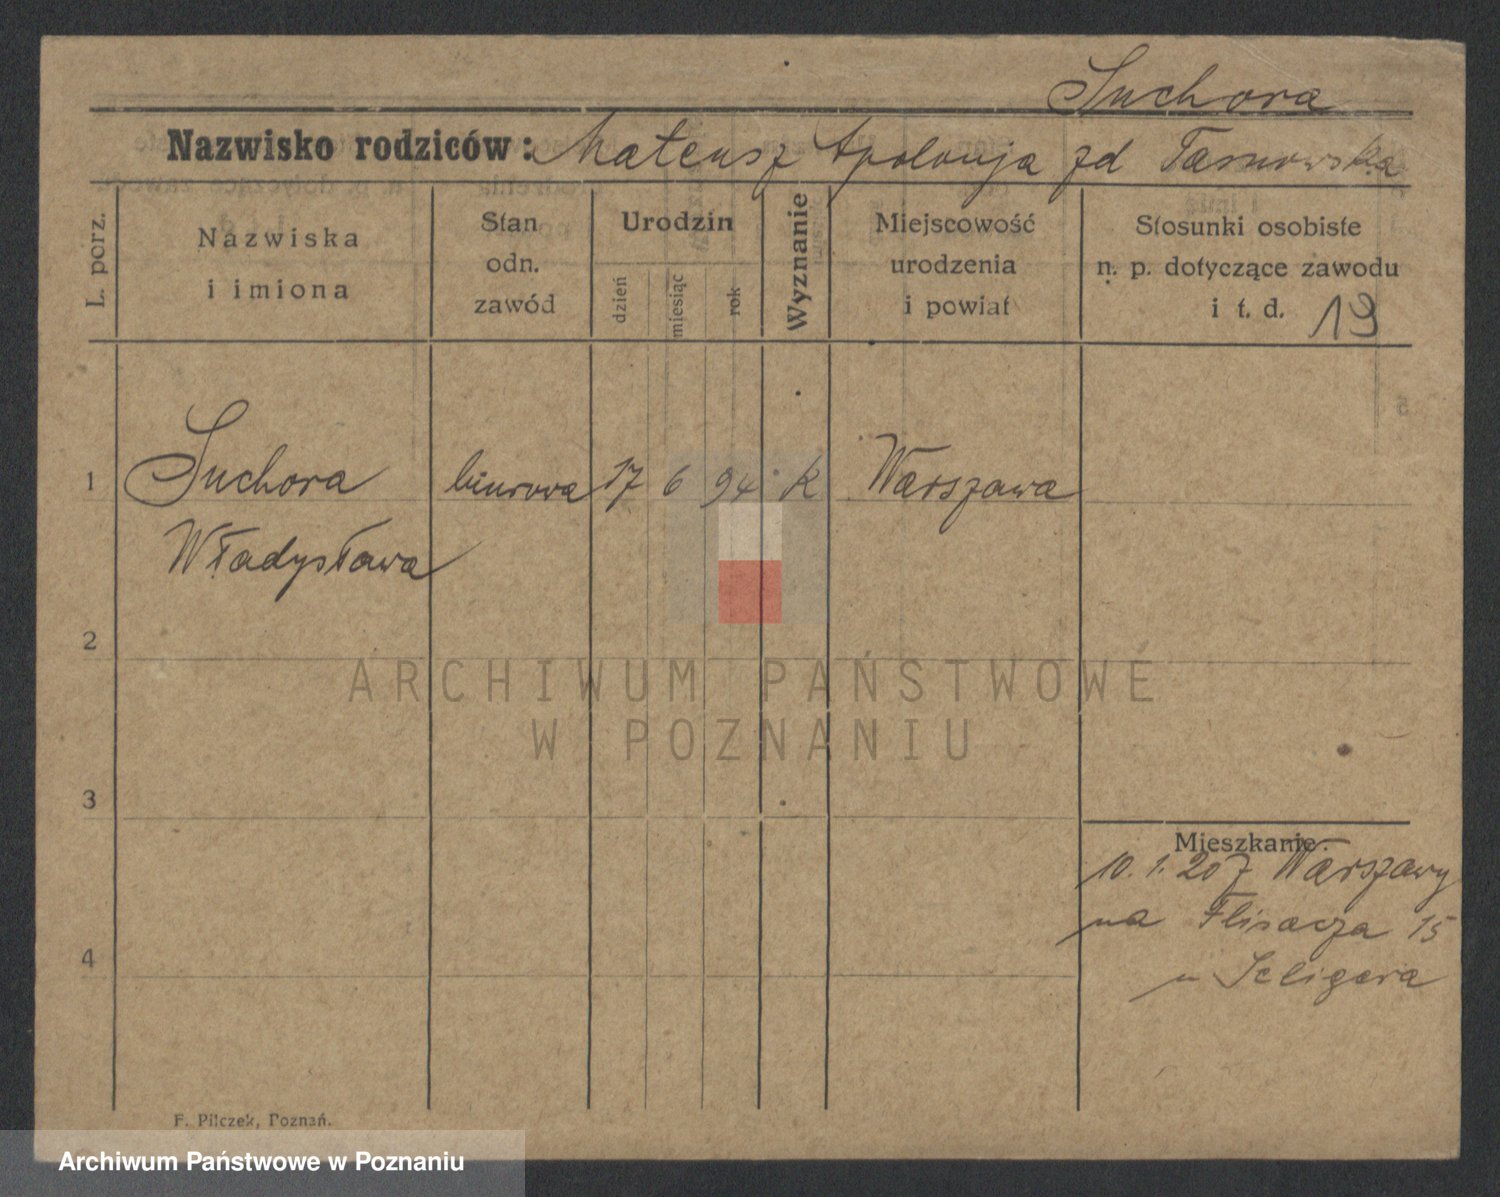 Suchora
Nazwisko rodziców: Mateusz Apolonja zd Tarnowska
L. porz.
Nazwiska
i imiona
Stan
odn.
zawód
Urodzin
dzień
miesiąc
rok
Wyznanie
Miejscowość
urodzenia
i powiat
Stosunki osobiste
n. p. dotyczące zawodu
i t. d. 19
1 Suchora biurowa 17 6 94 K Warszawa
Władysława
2
3
4
Mieszkanie:
10. 1. 20 z Warszawy
na Flisacza 15
u Seligera
F. Pilczek, Poznań.
ARCHIWUM PAŃSTWOWE
W POZNANIU
Archiwum Państwowe w Poznaniu